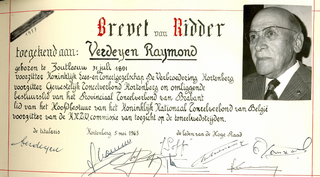 Brevet van Ridder
toegekend aan: Verdeyen Raymond
geboren te Zoutleeuw 31 juli 1891
voorzitter Koninklijk Lees-en Toneelgezelschap De Verbroedering Kortenberg
voorzitter Gewestelijk Toneelverbond Kortenberg en omliggende
bestuurslid van het Provinciaal Toneelverbond van Brabant
lid van het Hoofdbestuur van het Koninklijk Nationaal Toneelverbond van België
voorzitter van de commissie van toezicht op de toneelwedstrijden.
de titularis Kortenberg 5 mei 1963 de leden van de Hoge Raad